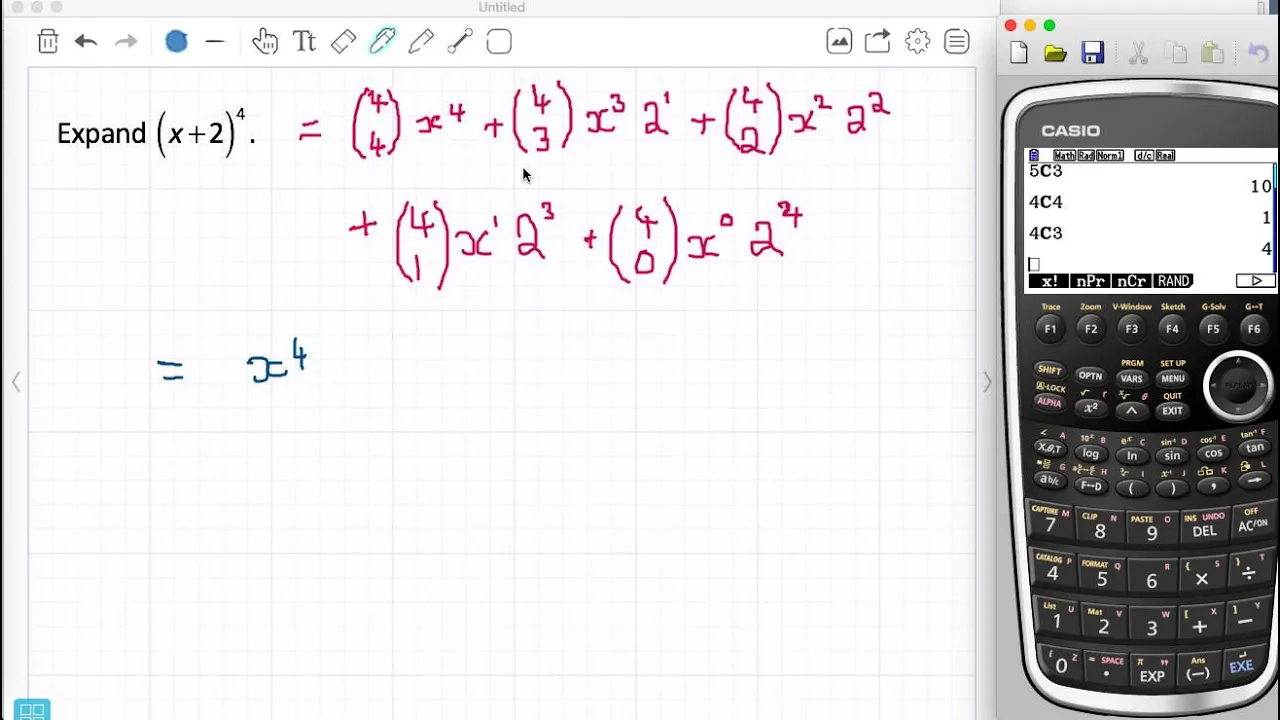 Untitled
Tt
Expand (x+2)⁴. = (4 4) x⁴ + (4 3) x³ 2¹ + (4 2) x² 2²
+ (4 1) x¹ 2³ + (4 0) x⁰ 2⁴
= x⁴
CASIO
Math Rad Norm1 d/c Real
5C3
10
4C4
1
4C3
4
x! nPr nCr RAND ▷
Trace Zoom V-Window Sketch G-Solv G↔T
F1 F2 F3 F4 F5 F6
PRGM SET UP
SHIFT OPTN VARS MENU
A-LOCK √ r θ QUIT
ALPHA x² ^ EXIT
∠ A 10ˣ B eˣ C sin⁻¹ D cos⁻¹ E tan⁻¹ F
X,θ,T log ln sin cos tan
G H I J K L
ab/c F↔D ( ) , →
CAPTURE M CLIP N PASTE O INS UNDO OFF
7 8 9 DEL AC/ON
CATALOG P FORMAT Q R { S } T
4 5 6 × ÷
List U Mat V W [ X ] Y
1 2 3 + −
i Z = SPACE π " Ans
0 . EXP (−) EXE